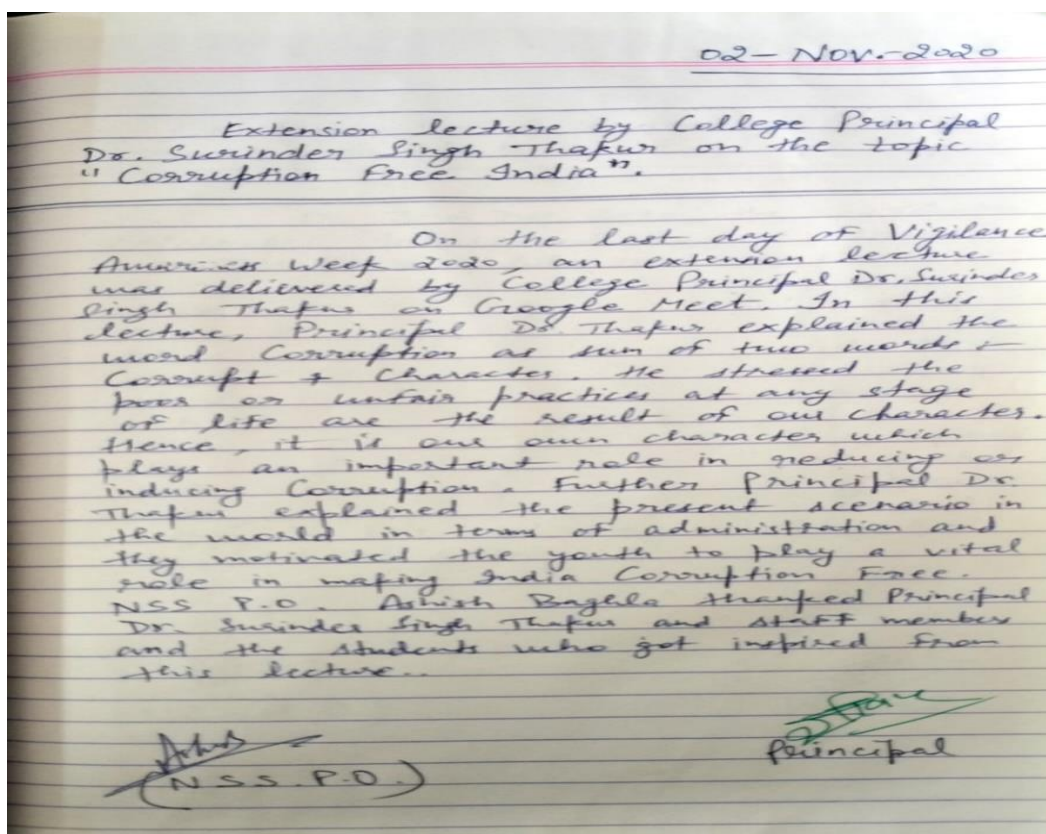 02-Nov.-2020
Extension lecture by College Principal
Dr. Surinder Singh Thakur on the topic
"Corruption Free India".
On the last day of Vigilance
Awareness Week 2020, an extension lecture
was delivered by College Principal Dr. Surinder
Singh Thakur on Google Meet. In this
lecture, Principal Dr Thakur explained the
word Corruption as sum of two words :-
Corrupt + Character. He stressed the
poor or unfair practices at any stage
of life are the result of our character.
Hence, it is our own character which
plays an important role in reducing or
inducing Corruption. Further Principal Dr.
Thakur explained the present scenario in
the world in terms of administration and
they motivated the youth to play a vital
role in making India Corruption Free.
NSS P.O. Ashish Baghla thanked Principal
Dr. Surinder Singh Thakur and staff member
and the students who got inspired from
this lecture..
Principal
(N.S.S. P.O.)